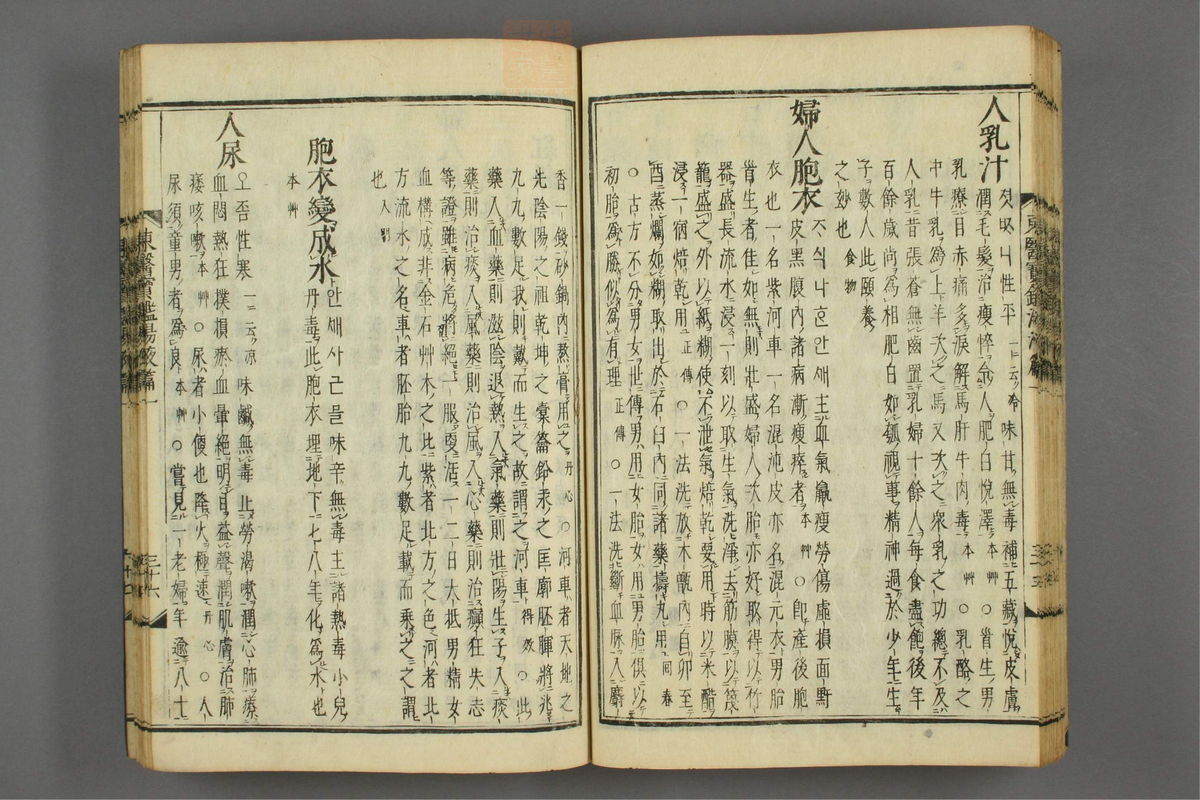 人乳汁 性平 一云冷 味甘無毒補五藏悅皮膚
潤毛髮治瘦悴令人肥白悅澤 本艸 ○首生男
乳療目赤痛多淚解馬肝牛肉毒 本艸 ○乳酪之
中牛乳爲上羊次之馬又次之衆乳之功總不及
人乳昔張蒼無齒置乳婦十餘人每食盡飽後年
百餘歲尚爲相肥白如瓠視事精神過於少年生
子數人此頤養
之妙也 食物
婦人胞衣 主血氣羸瘦勞傷虛損面䵟
皮黑腹內諸病漸瘦瘁者 本艸 ○卽產後胞
衣也一名紫河車一名混沌皮亦名混元衣男胎
首生者佳如無則壯盛婦人次胎亦好取得以竹
器盛長流水浸一刻以取生氣洗淨去筋膜以筏
籠盛之外以紙糊使不泄氣焙乾要用時以米醋
浸一宿焙乾用 正傳 ○一法洗放木甑內自卯至
酉蒸爛如糊取出於石臼內同諸藥擣丸用 回春
○古方不分男女世傳男用女胎女用男胎俱以
初胎爲勝似爲有理 正傳 ○一法洗斷血脉入麝
香一錢砂鍋內熬膏用之 丹心 ○河車者天地之
先陰陽之祖乾坤之橐籥鉛汞之匡廓胚暉將兆
九九數足我則戴而生之故謂之河車 得效 ○此
藥入血藥則滋陰退熱入氣藥則壯陽生子入痰
藥則治痰入風藥則治風入心藥則治癲狂失志
等證雖病危將絕一服更活一二日大抵男精女
血構成非金石艸木之比紫者北方之色河者北
方流水之名車者胚胎九九數足載而乘之之謂
也 入門
胞衣變成水 味辛無毒主諸熱毒小兒
丹毒此胞衣埋地下七八年化爲水也
本艸
人尿 오좀 性寒 一云凉 味鹹無毒止勞渴嗽潤心肺療
血悶熱狂撲損瘀血暈絕明目益聲潤肌膚治肺
痿咳嗽 本艸 ○尿者小便也降火極速 丹心 ○人
尿須童男者爲良 本艸 ○嘗見一老婦年逾八十
東醫寶鑑湯液篇一
三十六